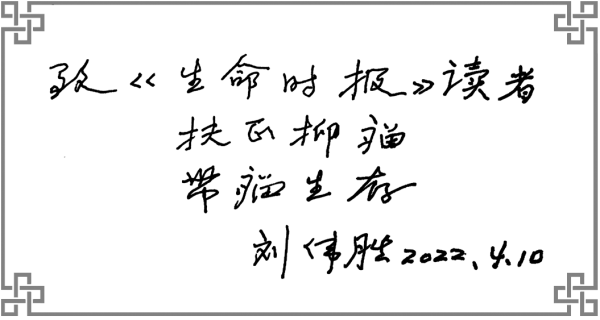 致《生命时报》读者
扶正抑瘤
带瘤生存
刘伟胜 2022.4.10